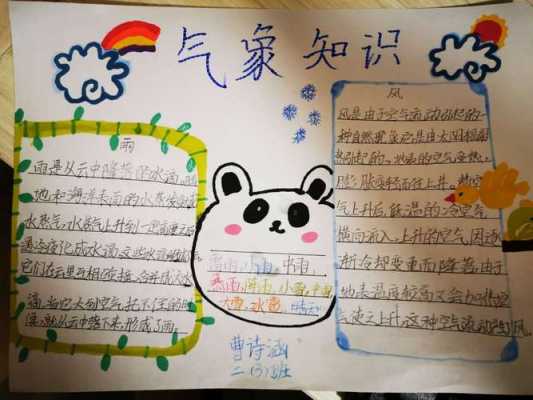 气象知识
雨
雨是从云中降落的水滴,陆
地和海洋表面的水蒸发变成
水蒸气,水蒸气上升到一定高度之后
遇冷变化成水滴,这些水滴组成了云,
它们在云里互相碰撞,合并成大水
滴,当它大到空气托不住的时
候,就从云中落下来,形成了雨。
暴雨,小雨,中雨,
雷雨,阵雨,小雪,中雪
大雪,冰雹,晴天
曹诗涵
二(3)班
风
风是由于空气流动引起的一
种自然现象,它是由太阳辐射
热引起的,地表的空气受热,
膨胀变轻而往上升。热空
气上升后,低温的冷空气
横向流入,上升的空气,因逐
渐冷却变重而降落,由于
地表温度较高又会加热空
气使之上升,这种空气流动产生风